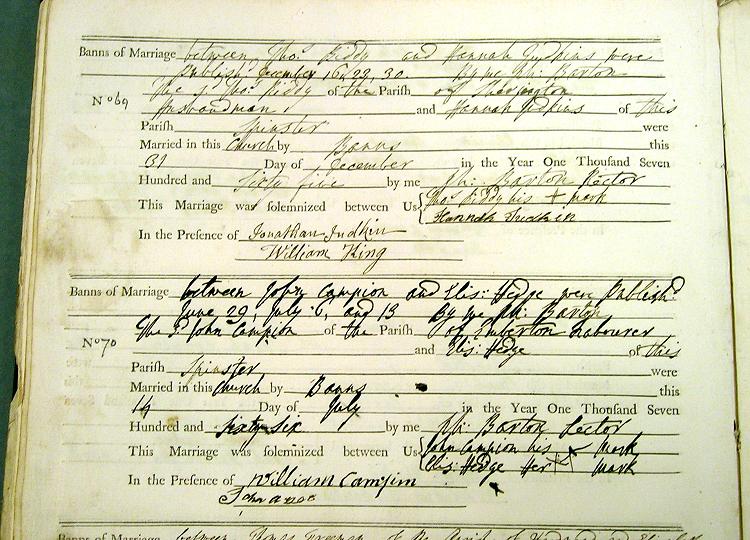 Banns of Marriage between Tho: Biddy and Hannah Judkins were
Publish'd December 16, 22, 30. By me Ph: Barton
No 69 The sd Tho: Biddy of the Parish of
Husbandman and Hannah Judkins of this
Parish Spinster were
Married in this Church by Banns this
31 Day of December in the Year One Thousand Seven
Hundred and Sixty five by me Ph: Barton Rector
This Marriage was solemnized between Us Tho: Biddy his + mark
Hannah Judkin
In the Presence of Jonathan Judkin
William King
Banns of Marriage between John Campion and Elis: Hedge were Publish'd
June 29, July 6, and 13 By me Ph: Barton
No 70 The sd John Campion of the Parish of Labourer
and Elis: Hedge of this
Parish Spinster were
Married in this Church by Banns this
14 Day of July in the Year One Thousand Seven
Hundred and Sixty Six by me Ph: Barton Rector
This Marriage was solemnized between Us John Campion his X mark
Elis: Hedge Her + mark
In the Presence of William Campion
Banns of Marriage between Thomas Freeman of the Parish of and